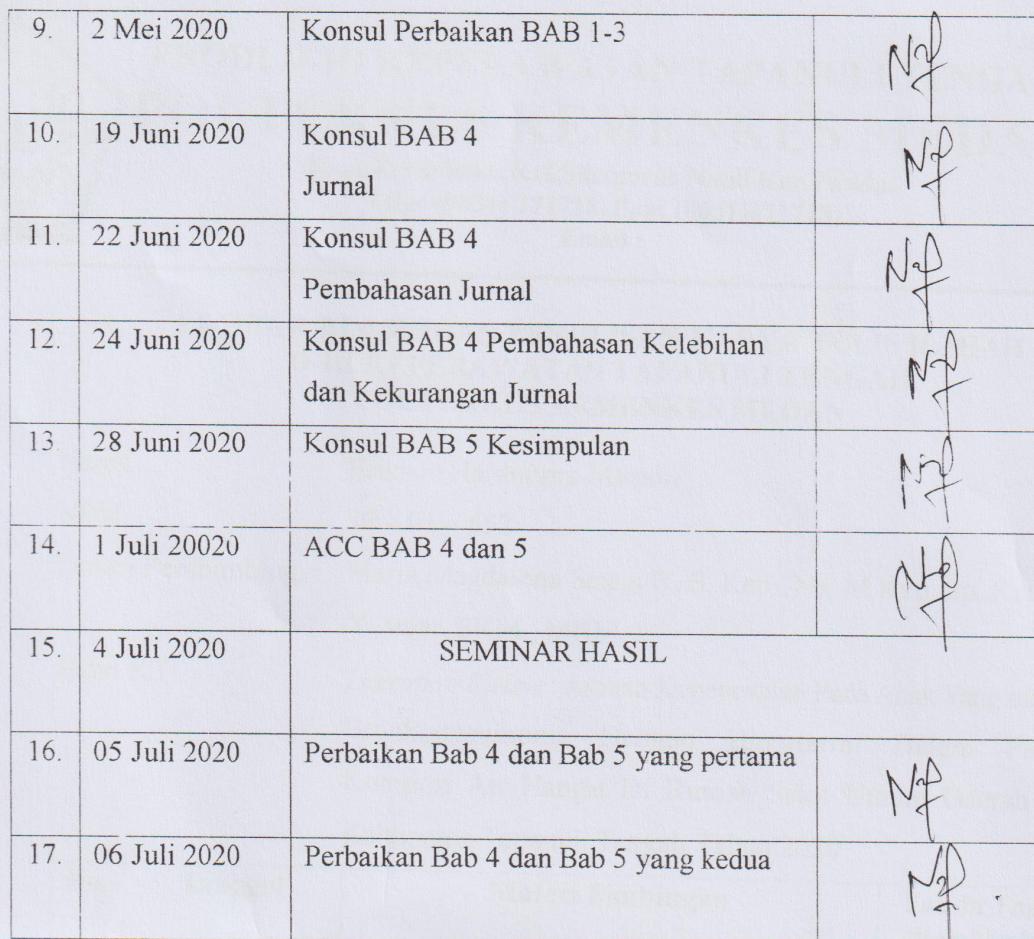 9. 2 Mei 2020 Konsul Perbaikan BAB 1-3
10. 19 Juni 2020 Konsul BAB 4
Jurnal
11. 22 Juni 2020 Konsul BAB 4
Pembahasan Jurnal
12. 24 Juni 2020 Konsul BAB 4 Pembahasan Kelebihan
dan Kekurangan Jurnal
13. 28 Juni 2020 Konsul BAB 5 Kesimpulan
14. 1 Juli 20020 ACC BAB 4 dan 5
15. 4 Juli 2020 SEMINAR HASIL
16. 05 Juli 2020 Perbaikan Bab 4 dan Bab 5 yang pertama
17. 06 Juli 2020 Perbaikan Bab 4 dan Bab 5 yang kedua